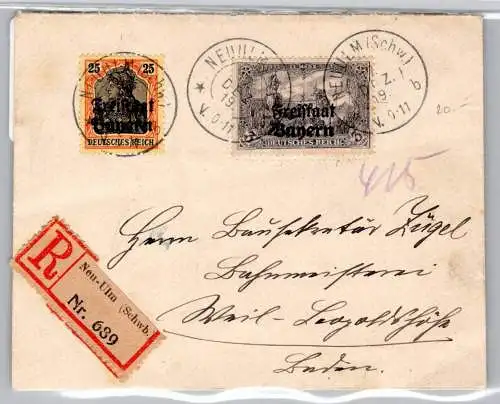 25 25
Freistaat
Bayern
DEUTSCHES REICH
Freistaat
Bayern
DEUTSCHES REICH
NEUULM
19
V. 0-11
NEUULM (Schw)
19
V. 0-11
b
20.-
415
Herrn Bausekretär Zügel
Bahnmeisterei
Weil-Leopoldshöhe
Baden.
R
Neu-Ulm (Schwb.)
Nr. 689